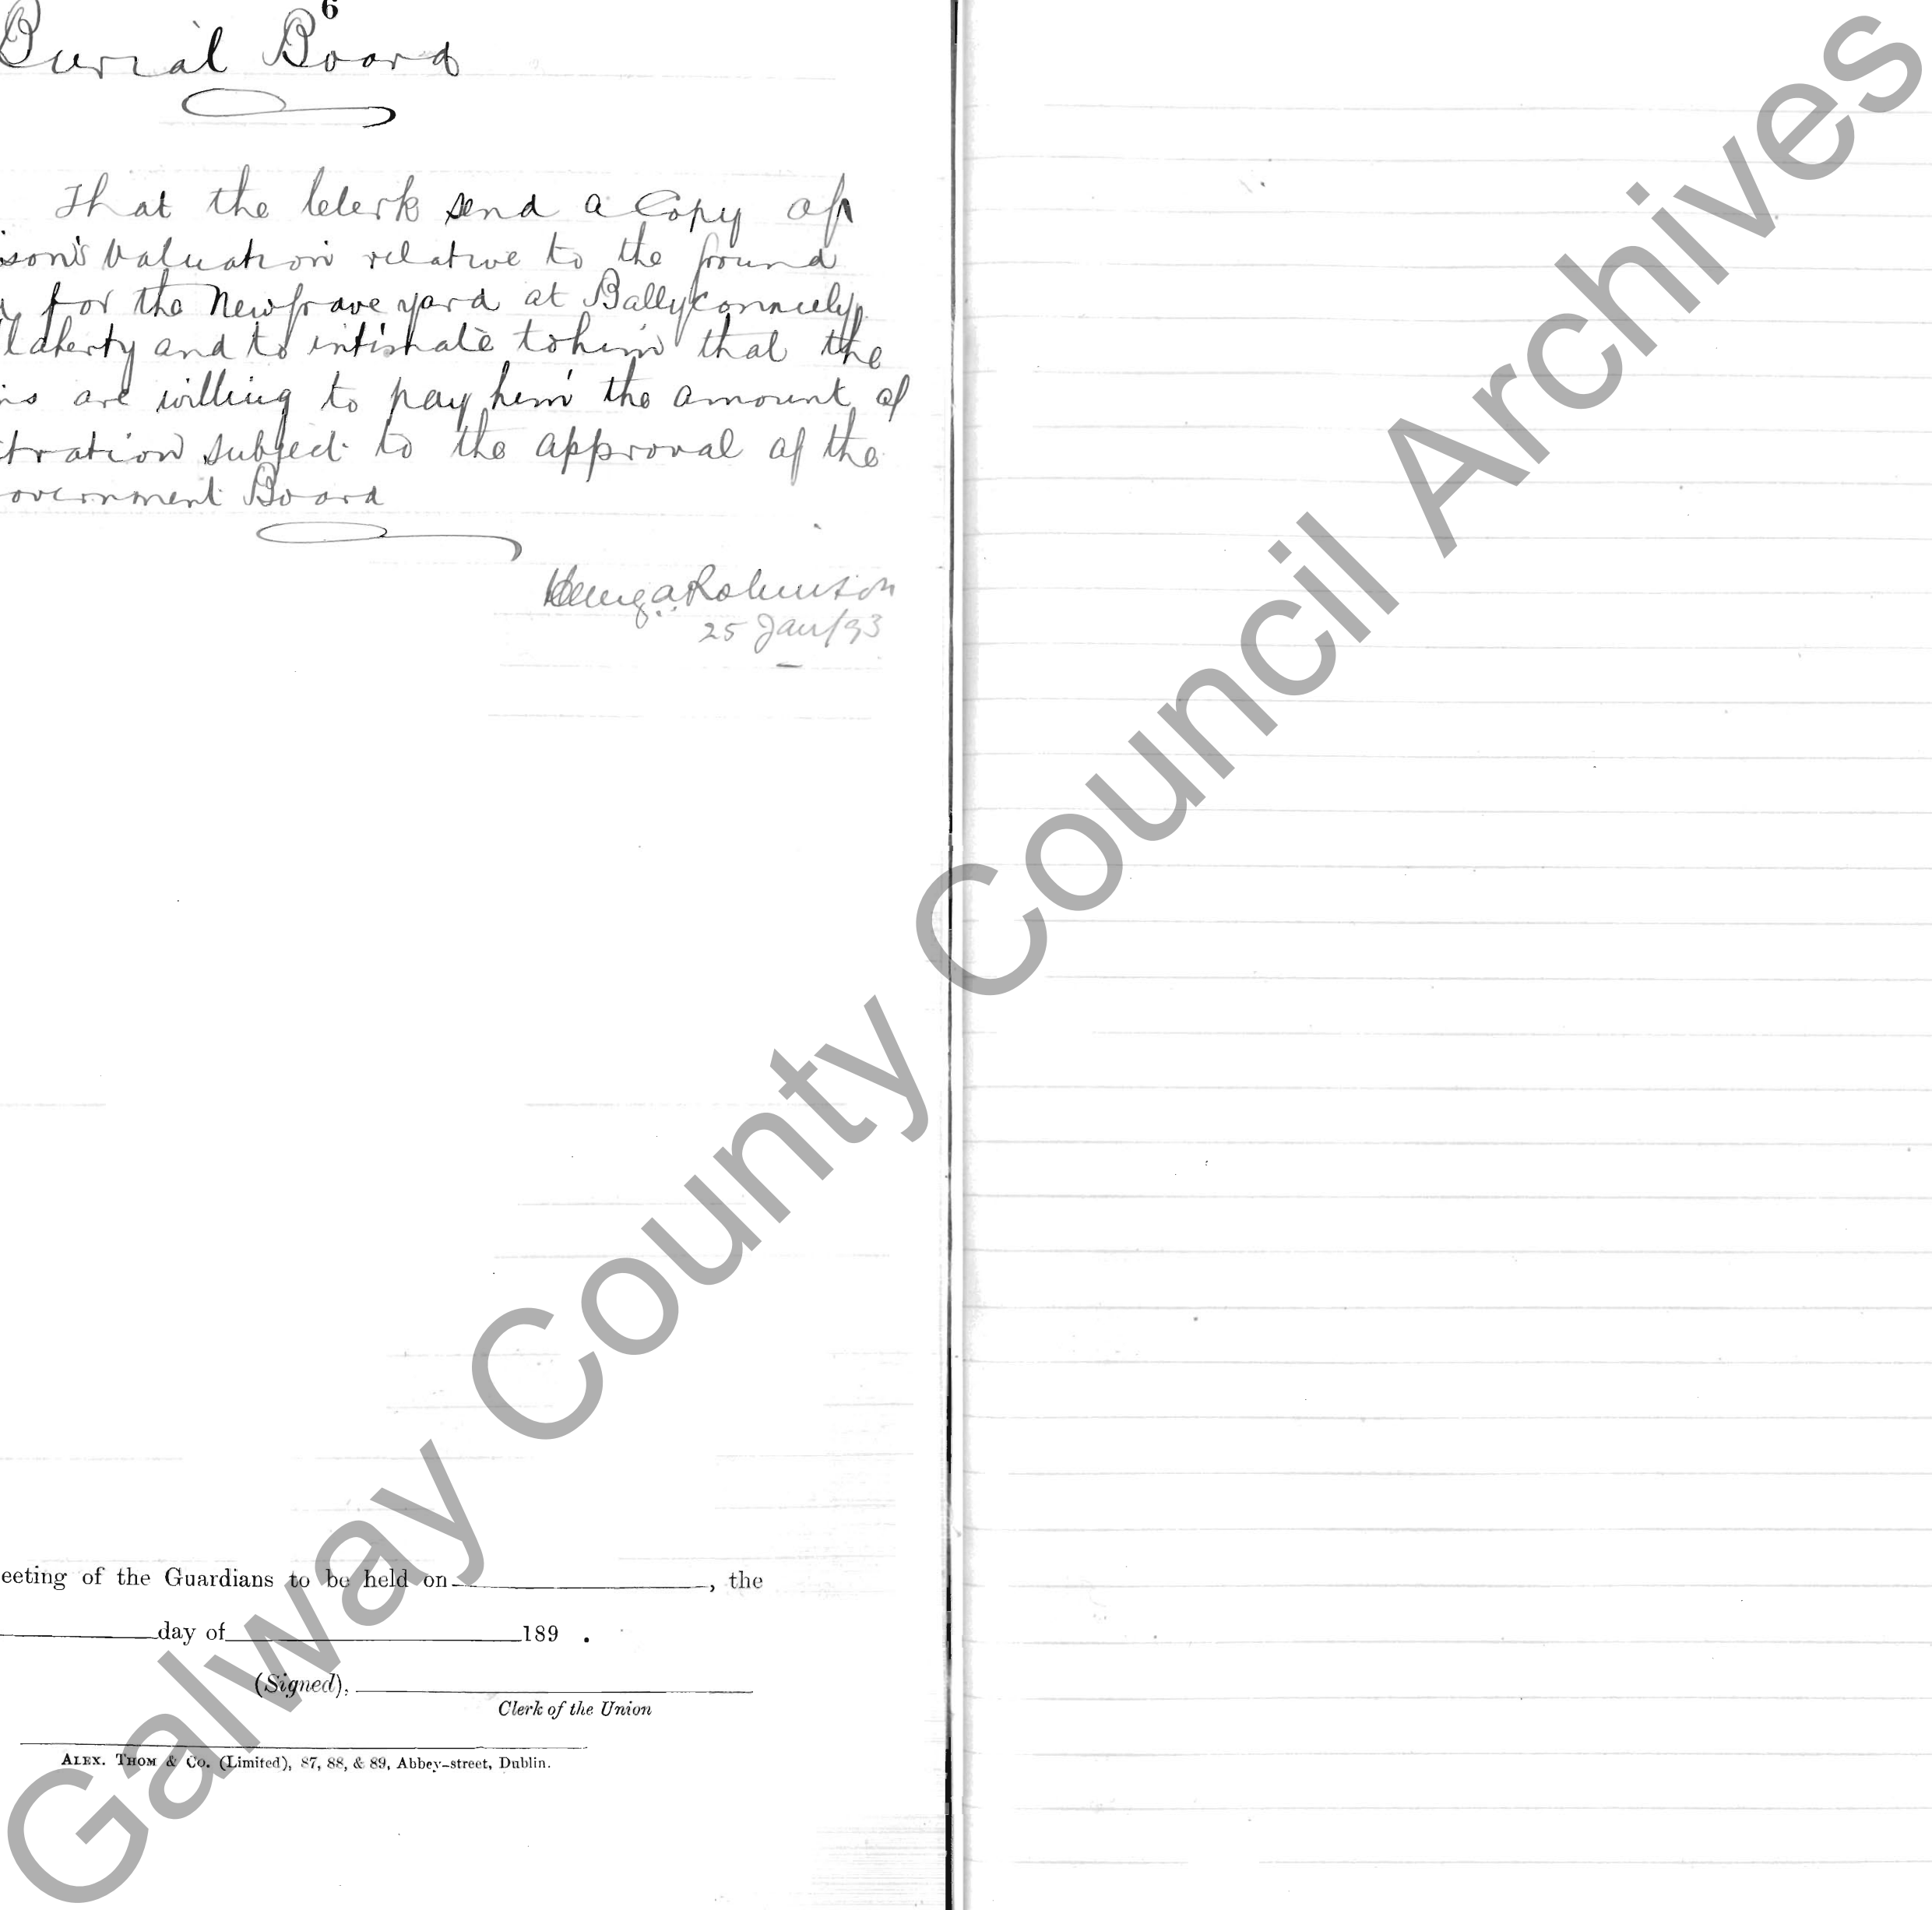 6
Burial Board
That the Clerk send a Copy of
ison's Valuation relative to the ground
for the New grave yard at Ballyconneely
laherty and to intimate to him that the
ns are willing to pay him the amount of
tration subject to the approval of the
overnment Board
Henry A. Robinson
25 Jan/93
eeting of the Guardians to be held on , the
day of 189 .
(Signed),
Clerk of the Union
ALEX. THOM & Co. (Limited), 87, 88, & 89, Abbey-street, Dublin.
Galway County Council Archives